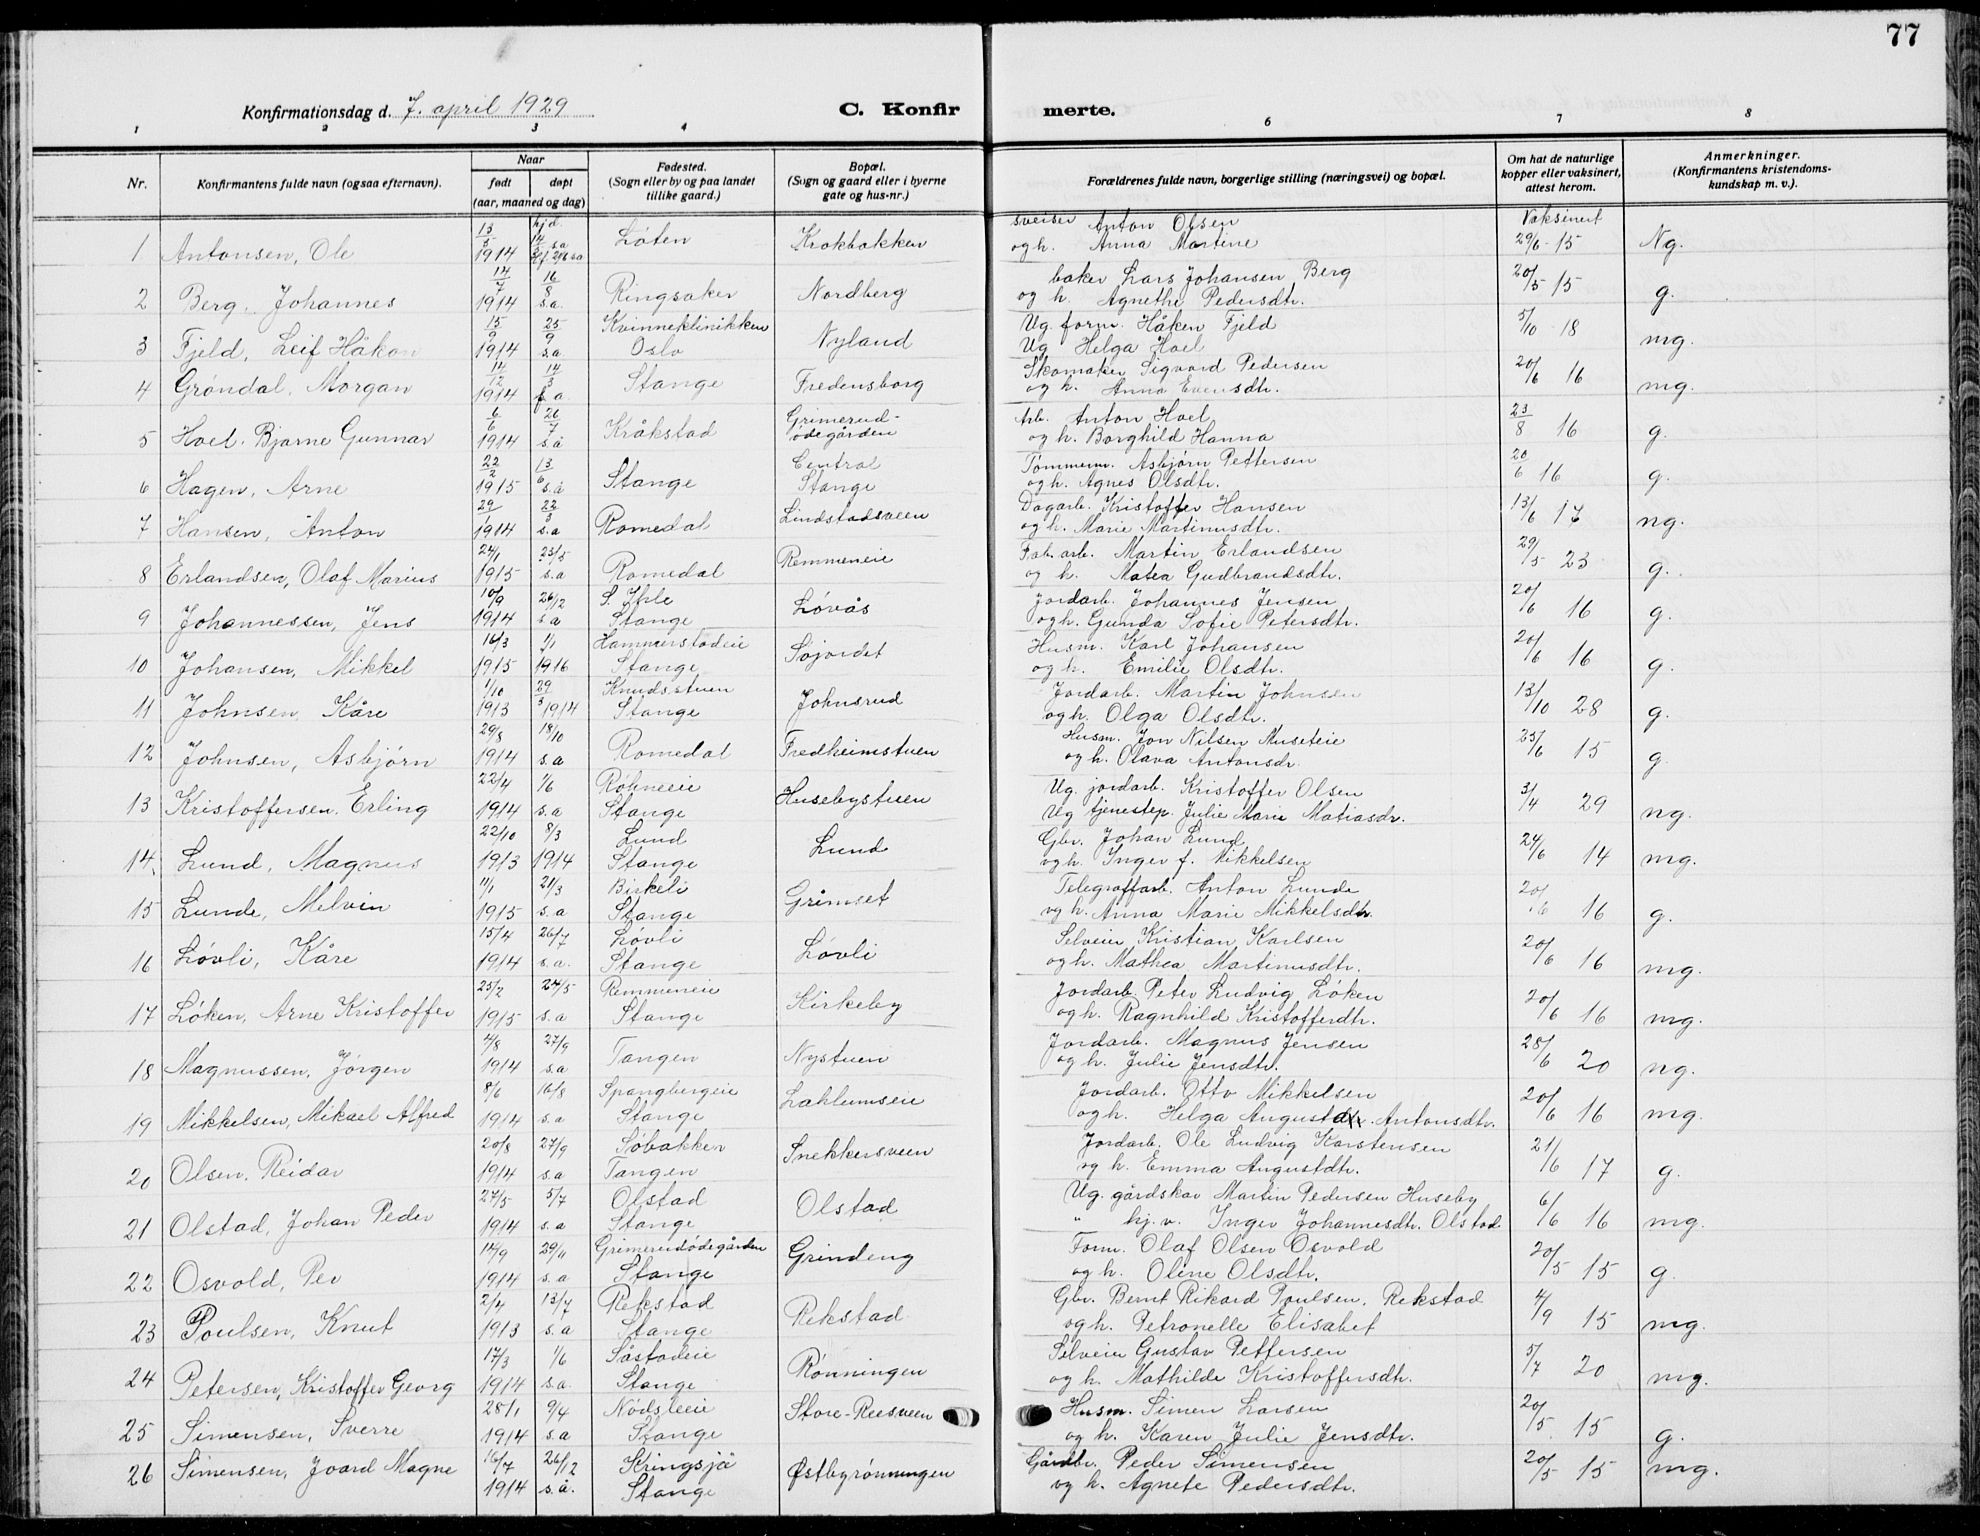 77
Konfirmationsdag d. 7. april 1929
C. Konfir
merte.
1 2 3 4 5 6 7 8
Nr. | Konfirmantens fulde navn (ogsaa efternavn). | Naar født døpt (aar, maaned og dag) | Fødested. (Sogn eller by og paa landet tillike gaard.) | Bopæl. (Sogn og gaard eller i byerne gate og hus-nr.) | Forældrenes fulde navn, borgerlige stilling (næringsvei) og bopæl. | Om hat de naturlige kopper eller vaksinert, attest herom. | Anmerkninger. (Konfirmantens kristendoms-kundskap m. v.).
1 Antonsen, Ole 1914 Løten Krokbakken sveiser Anton Olsen og h. Anna Martine Vaksinert 29/6-15 Ng.
2 Berg, Johannes 14/7 1914 16/8 s.a. Ringsaker Nordberg baker Lars Johansen Berg og h. Agnethe Pedersdtr. 20/5 15 g.
3 Fjeld, Leif Håkon 15/9 1914 25/9 s.a. Kvinneklinikken Oslo Nyland Ug. form. Håken Fjeld Ug Helga Hoel 5/10 18 mg.
4 Grøndal, Morgan 14/12 1914 14/3 Stange Fredensborg Skomaker Sigvard Pedersen og h. Anna Evensdtr. 20/6 16 mg.
5 Hoel, Bjarne Gunnar 6/6 1914 26/7 s.å Kråkstad Grimerud-ødegården Arb. Anton Hoel og h. Borghild Hanna 23/8 16 g.
6 Hagen, Arne 22/2 1915 13/6 s.å Stange Central Stange Tømmerm. Asbjørn Pettersen og h. Agnes Olsdtr. 20/6 16 g.
7 Hansen, Anton 29/1 1914 22/3 s.a Romedal Lindstadsveen Dagarb. Kristoffer Hansen og h. Marie Martinusdtr. 13/6 17 ng.
8 Erlandsen, Olaf Marius 24/1 1915 23/5 s.a Romedal Remmeneie Fab. arb. Martin Erlandsen og h. Matea Gudbrandsdtr. 29/5 23 g.
9 Johannessen, Jens 10/9 1914 26/12 s.a S. Ihle Stange Løvås Jordarb. Johannes Jensen og h. Gunda Sofie Petersdtr. 20/6 16 g.
10 Johansen, Mikkel 16/3 1915 1/1 1916 Hammerstadeie Stange Søjordet Husm. Karl Johansen og h. Emilie Olsdtr. 20/6 16 g.
11 Johnsen, Kåre 1/10 1913 29/3 1914 Knudsstuen Stange Johnsrud Jordarb. Martin Johnsen og h. Olga Olsdtr. 13/10 28 g.
12 Johnsen, Asbjørn 29/8 1914 18/10 s.a Romedal Fredheimstuen Husm. Jon Nilsen Museteie og h. Olava Antonsdr. 23/6 15 g.
13 Kristoffersen, Erling 22/4 1914 1/6 s.a Røhneeie Stange Husebystuen Ug. jordarb. Kristoffer Olsen Ug tjenestep. Julie Marie Matiasdr. 3/4 29 ng.
14 Lund, Magnus 22/10 1913 8/3 1914 Lund Stange Lund Gbr. Johan Lund og h. Inger f. Mikkelsen 24/6 14 mg.
15 Lunde, Melvin 11/1 1915 21/3 s.a Birkeli Stange Grimset Telegrafarb. Anton Lunde og h. Anna Marie Mikkelsdtr. 20/6 16 g.
16 Løvli, Kåre 15/4 1914 26/7 s.a. Løvli Stange Løvli Selveier Kristian Karlsen og h. Mathea Martinusdtr. 20/6 16 mg.
17 Løken, Arne Kristoffer 25/2 1915 24/5 s.a Remmeneie Stange Kirkeby Jordarb. Peter Ludvig Løken og h. Ragnhild Kristofferdtr. 20/6 16 mg.
18 Magnussen, Jørgen 4/8 1914 27/9 s.a Tangen Nystuen Jordarb. Magnus Jensen og h. Julie Jensdtr. 28/6 20 ng.
19 Mikkelsen, Mikael Alfred 8/6 1914 16/8 s.a Spangbergeie Stange Lahlumseie Jordarb. Otto Mikkelsen og h. Helga Augusta Antonsdtr. 20/6 16 mg.
20 Olsen, Reidar 20/8 1914 27/9 s.a Søbakken Tangen Snekkersveen Jordarb. Ole Ludvig Karstensen og h. Emma Augustdtr. 21/6 17 g.
21 Olstad, Johan Peder 27/5 1914 5/7 s.a Olstad Stange Olstad Ug. gårdskar Martin Pedersen Huseby " hj. v. Inger Johannesdtr. Olstad 6/6 16 mg.
22 Osvold, Per 14/9 1914 29/11 s.a Grimerudødegården Stange Grindeng Form. Olaf Olsen Osvold og h. Oline Olsdtr. 20/5 15 g.
23 Poulsen, Knut 2/4 1913 13/7 s.a Rekstad Stange Rekstad Gbr. Bernt Rikard Poulsen, Rekstad og h. Petronelle Elisabet 4/9 15 mg.
24 Petersen, Kristoffer Georg 17/3 1914 1/6 s.a. Såstadeie Stange Rønningen Selveier Gustav Pettersen og h. Mathilde Kristoffersdtr. 5/7 20 mg.
25 Simensen, Sverre 28/1 1914 9/4 s.a Nødsleeie Stange Store-Reesveen Husm. Simen Larsen og h. Karen Julie Jensdtr. 20/5 15 g.
26 Simensen, Joard Magne 16/7 1914 26/12 s.å. Kringsjå Stange Østbyrønningen Gårdbr. Peder Simensen og h. Agnete Pedersdtr. 20/5 15 mg.